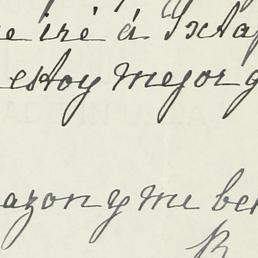 e iré á Ixtap
estoy mejor q
azon y me be
R